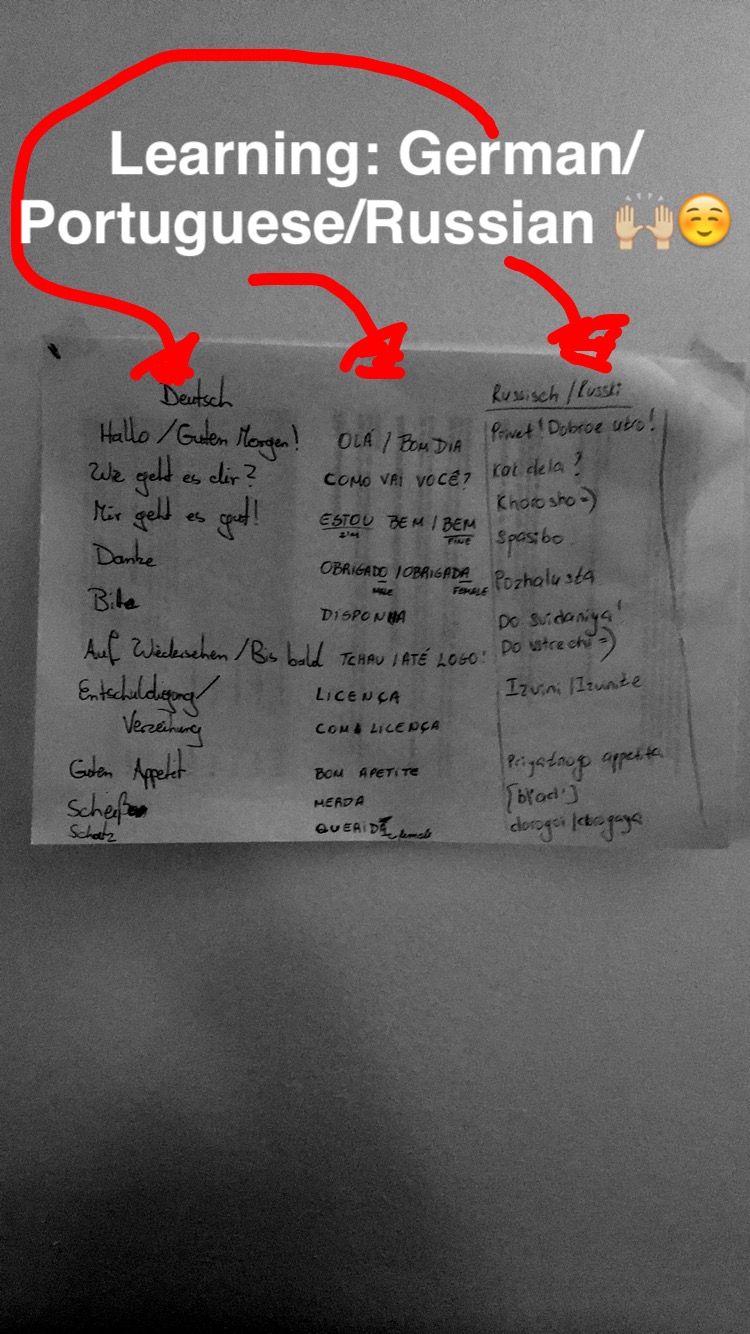 Learning: German/
Portuguese/Russian 🙌🏼☺️
Deutsch
Russisch / Russki
Hallo / Guten Morgen!
OLÁ / BOM DIA
Privet! Dobroe utro!
Wie geht es dir?
COMO VAI VOCÊ?
Kak dela?
Mir geht es gut!
ESTOU BEM / BEM
FINE
Khorosho =)
Danke
OBRIGADO / OBRIGADA
MALE
FEMALE
Spasibo
Bitte
DISPONHA
Pozhalusta
Auf Wiedersehen / Bis bald
TCHAU / ATÉ LOGO!
Do svidaniya!
Do vstrechi =)
Entschuldigung /
Verzeihung
LICENÇA
COM LICENÇA
Izvini / Izvinite
Guten Appetit
BOM APETITE
Priyatnogo appetita
MERDA
[blʲadʲ]
Schatz
female
dorogoi /